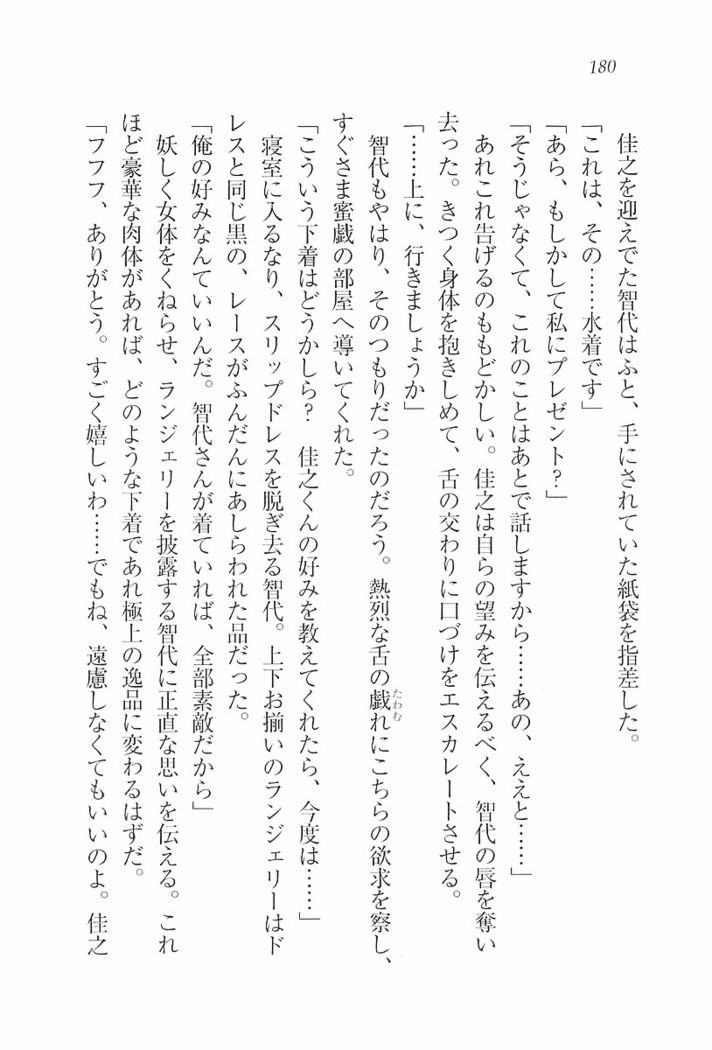 180
佳之を迎えでた智代はふと、手にされていた紙袋を指差した。
「これは、その……水着です」
「あら、もしかして私にプレゼント？」
「そうじゃなくて、これのことはあとで話しますから……あの、ええと……」
あれこれ告げるのももどかしい。佳之は自らの望みを伝えるべく、智代の唇を奪い
去った。きつく身体を抱きしめて、舌の交わりに口づけをエスカレートさせる。
「……上に、行きましょうか」
智代もやはり、そのつもりだったのだろう。熱烈な舌の戯れにこちらの欲求を察し、
たわむ
すぐさま蜜戯の部屋へ導いてくれた。
「こういう下着はどうかしら？　佳之くんの好みを教えてくれたら、今度は……」
寝室に入るなり、スリップドレスを脱ぎ去る智代。上下お揃いのランジェリーはド
レスと同じ黒の、レースがふんだんにあしらわれた品だった。
「俺の好みなんていいんだ。智代さんが着ていれば、全部素敵だから」
妖しく女体をくねらせ、ランジェリーを披露する智代に正直な思いを伝える。これ
ほど豪華な肉体があれば、どのような下着であれ極上の逸品に変わるはずだ。
「フフフ、ありがとう。すごく嬉しいわ……でもね、遠慮しなくてもいいのよ。佳之